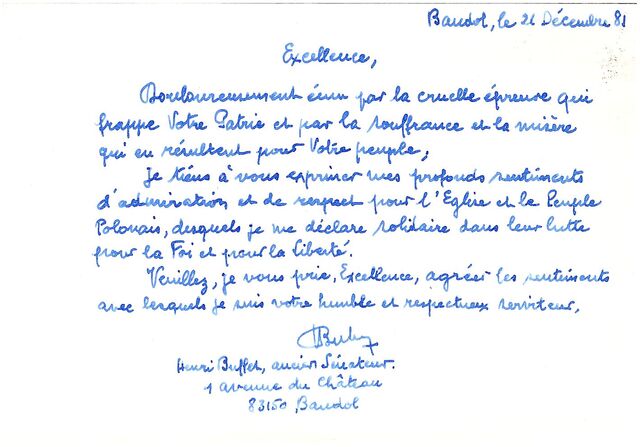 Bandol, le 21 Décembre 81
Excellence,
Douloureusement ému par la cruelle épreuve qui
frappe Votre Patrie et par la souffrance et la misère
qui en résultent pour Votre peuple,
je tiens à vous exprimer mes profonds sentiments
d'admiration et de respect pour l'Eglise et le Peuple
Polonais, desquels je me déclare solidaire dans leur lutte
pour la Foi et pour la liberté.
Veuillez, je vous prie, Excellence, agréer les sentiments
avec lesquels je suis votre humble et respectueux serviteur.
Henri Buffet, ancien Sénateur.
1 avenue du Château
83150, Bandol